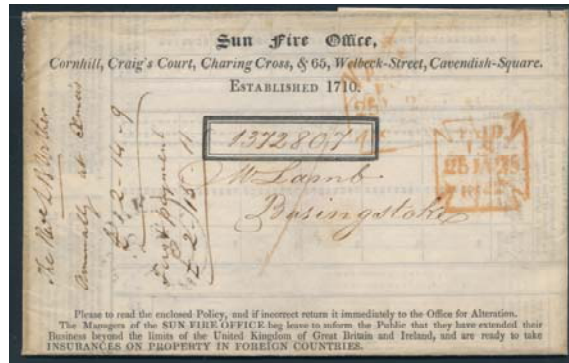 Sun Fire Office,
Cornhill, Craig's Court, Charing Cross, & 65, Welbeck-Street, Cavendish-Square.
ESTABLISHED 1710.
1372807
Mr Lamb
Basingstoke
The Revd
Annually at Xmas
£ 2-14-9
First payment
£ 2-15-11
PAID
Please to read the enclosed Policy, and if incorrect return it immediately to the Office for Alteration.
The Managers of the SUN FIRE OFFICE beg leave to inform the Public that they have extended their
Business beyond the limits of the United Kingdom of Great Britain and Ireland, and are ready to take
INSURANCES ON PROPERTY IN FOREIGN COUNTRIES.